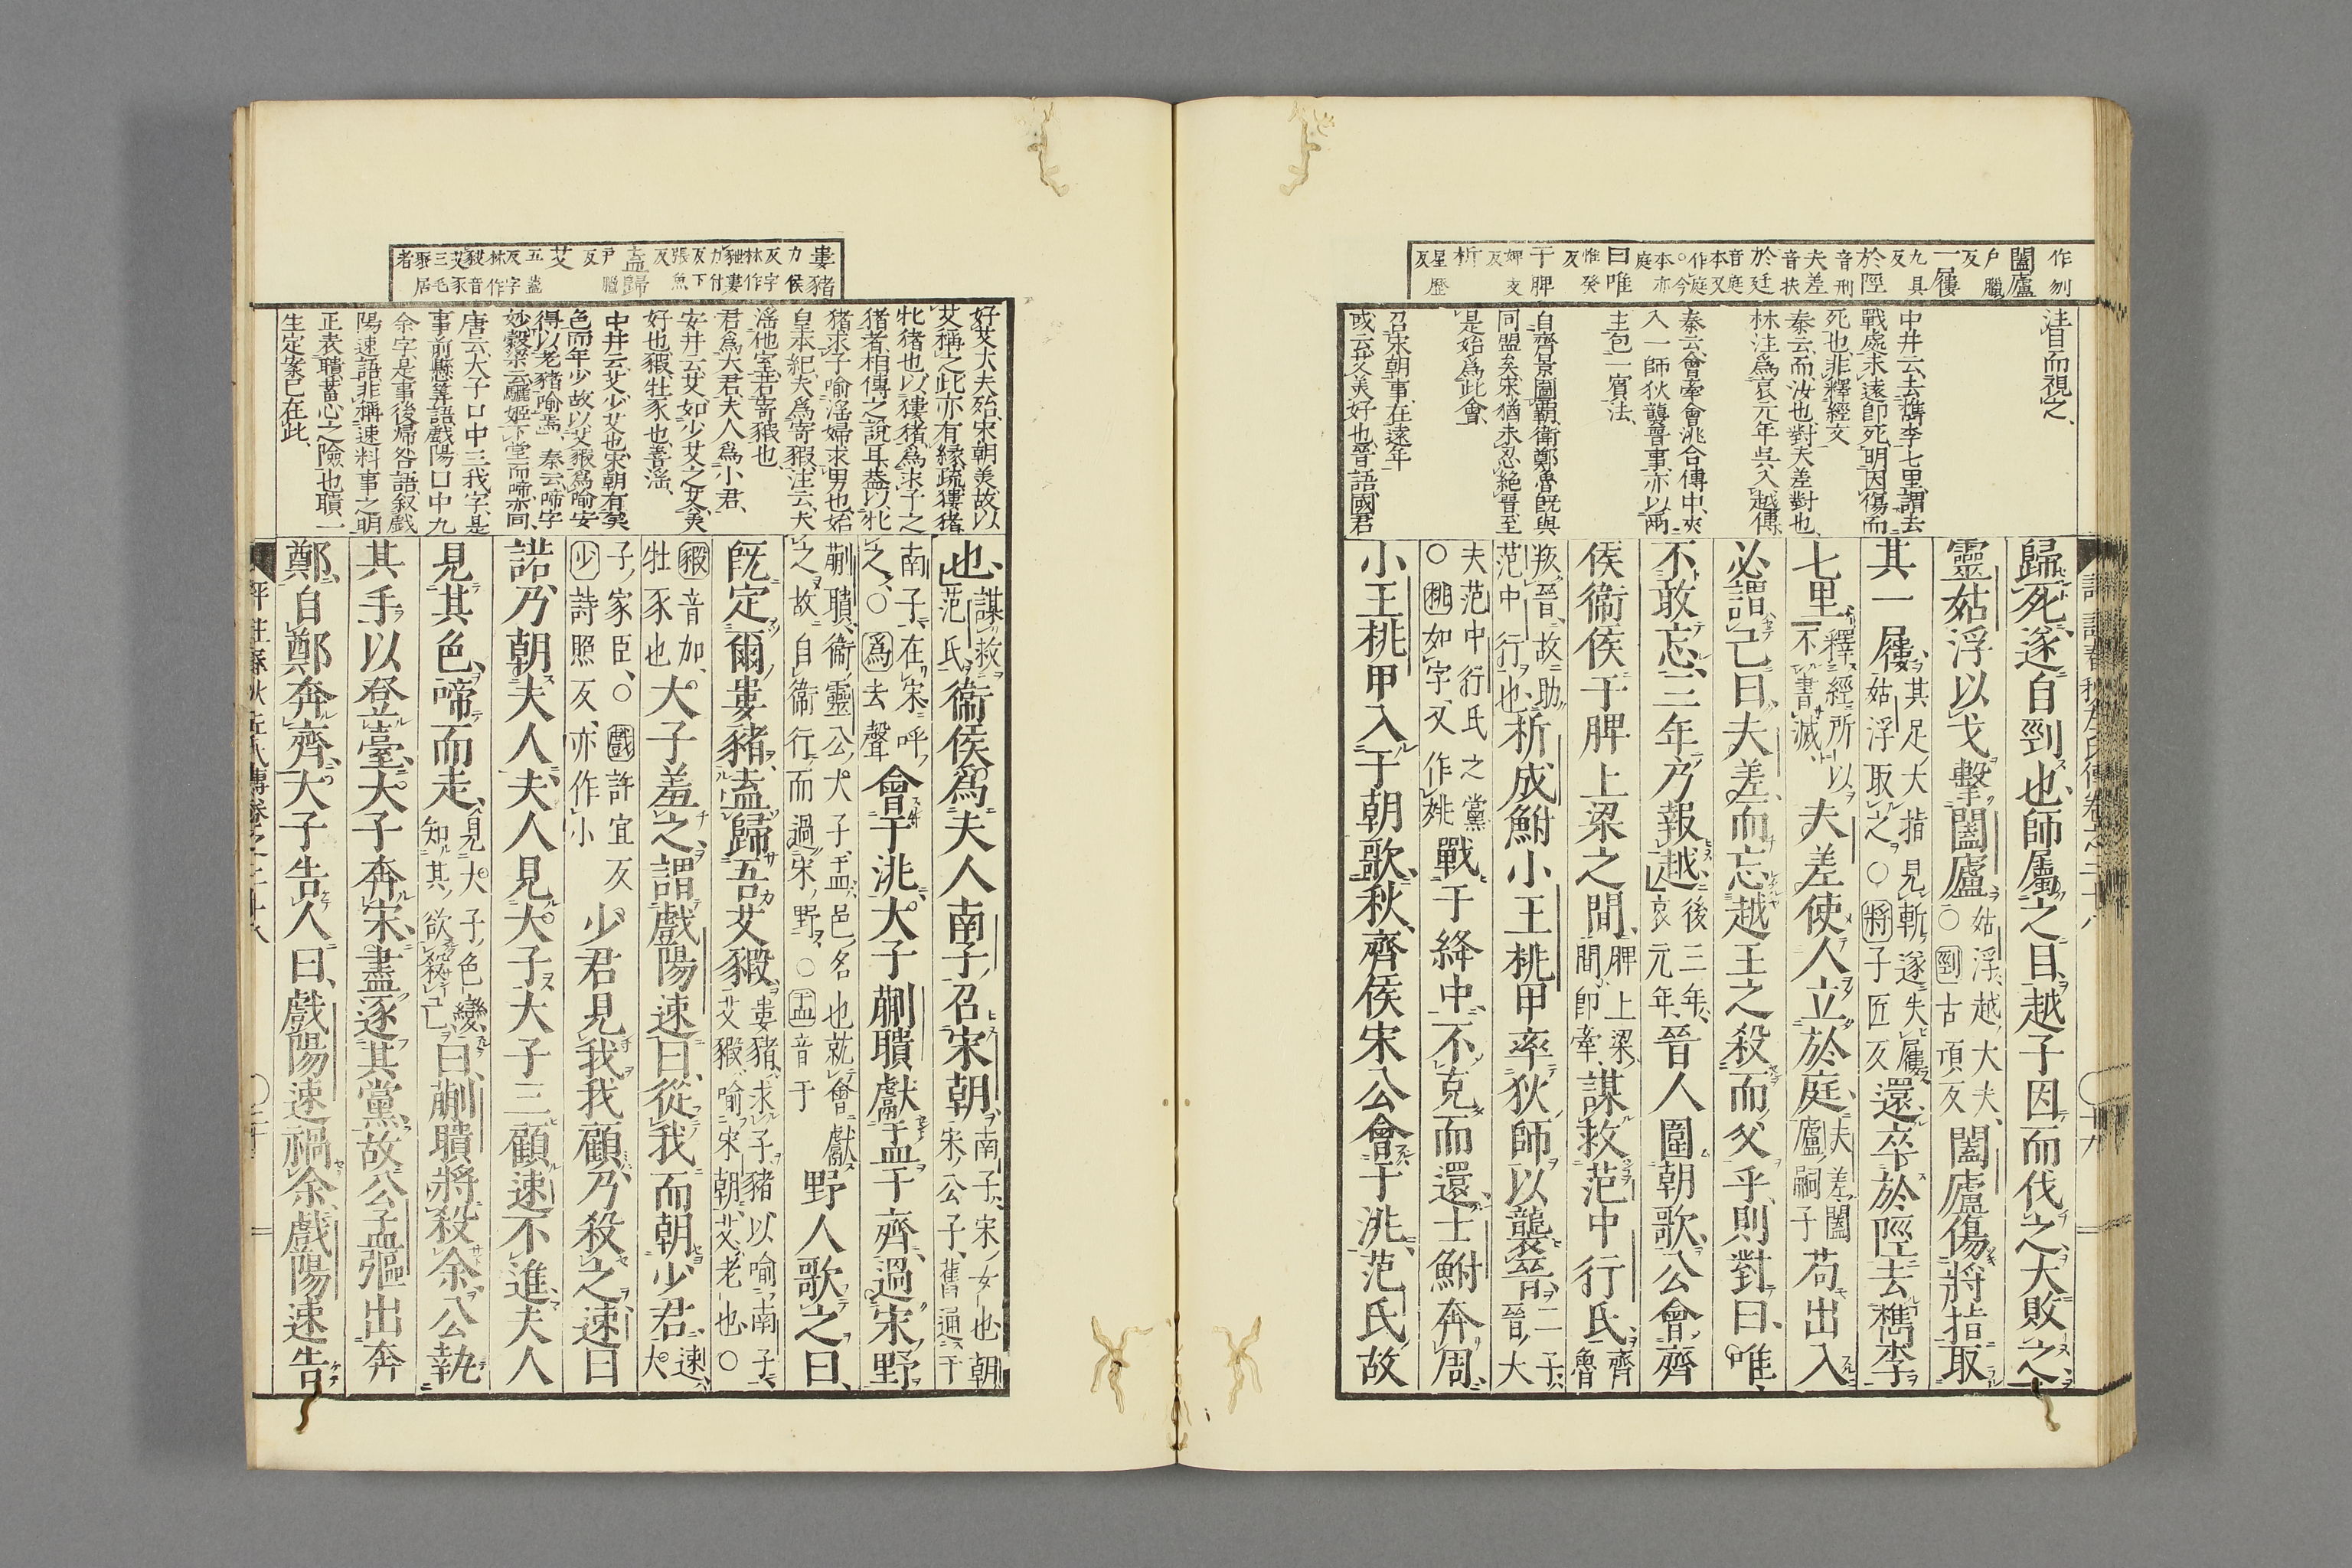 作刎
闔廬
戶臘反
一屨
九具反
於陘
音刑
夫差
音扶
於廷
音庭又本作庭○今本亦庭
曰唯
惟癸反
于脾
婢支反
析
星歷反
注目而視之、
中井云、去檇李七里、謂去
戰處未遠即死、明因傷而
死也、非釋經文
秦云、而、汝也、對夫差對也、
林注爲哀元年吳入越傳
秦云、會牽會洮合傳中、夾
入一師狄襲晉事、亦以兩
主包一賓法、
自齊景圖霸、衛鄭魯既與
同盟矣、宋猶未忍絕晉、至
是始爲此會、
召宋朝事、在遠年
或云、艾、美好也、晉語、國君
歸死、遂自剄也、師屬之目、越子因而伐之、大敗之、
靈姑浮以戈擊闔廬、姑浮、越大夫、○剄古頂反闔廬傷將指、取
其一屨、其足大指見斬、遂失屨、姑浮取之、○將子匠反還、卒於陘、去檇李
七里、釋經所以不書滅、夫差使人立於庭、夫差、闔廬嗣子苟出入、
必謂己曰、夫差、而忘越王之殺而父乎、則對曰、唯、
不敢忘、三年乃報越、後三年、哀元年、晉人圍朝歌、公會齊
侯衞侯于脾上梁之間、脾上梁間、即牽、謀救范中行氏、齊魯
叛晉、故助范中行也、析成鮒小王桃甲率狄師以襲晉、二子、晉大
夫、范中行氏之黨○桃如字、又作姚戰于絳中、不克而還、士鮒奔周、
小王桃甲入于朝歌、秋、齊侯宋公會于洮、范氏故
婁豬
力侯反字林作䝏力付反下張魚反
盍歸
戶臘反
艾
五蓋反字林作䝘音艾三毛聚居者
好艾大夫殆、宋朝美、故以
艾稱之、此亦有緣、疏、獀豬
牝豬也、以獀豬、爲求子之
豬者、相傳之說耳、蓋以牝
豬求子、喻淫婦求男也、始
皇本紀、夫爲寄豭、注云、夫
淫他室、若寄豭也、
君爲大君、夫人爲小君、
安井云、艾如少艾之艾、美
好也、豭、牡豕也、善淫、
中井云、艾、少艾也、宋朝有美
色而年少、故以艾豭爲喻、安
得以老豬喻焉、秦云、啼字
妙、穀梁云、驪姬下堂而啼、亦同、
唐云、大子口中三我字、是
事前懸算語、戲陽口中九
余字、是事後歸咎語、叙戲
陽速語、非稱速料事之明
正表聵蓄心之險也、聵一
生定案、已在此、
也、謀救范氏、衞侯爲夫人南子召宋朝、南子、宋女也、朝、宋公子、舊通于
南子、在宋呼之、○爲去聲會于洮、大子蒯聵獻盂于齊、過宋野、
蒯聵、衞靈公大子、盂、邑名也、就會獻之、故自衞行而過宋野、○盂音于野人歌之曰、
既定爾婁豬、盍歸吾艾豭、婁豬、求子豬、以喻南子、艾豭、喻宋朝、艾、老也、○
豭音加、牡豕也大子羞之、謂戲陽速曰、從我而朝少君、速、大
子家臣、○戲許宜反少詩照反、亦作小少君見我、我顧、乃殺之、速曰
諾、乃朝夫人、夫人見大子、大子三顧、速不進、夫人
見其色、啼而走、見大子色變、知其欲殺己、曰、蒯聵將殺余、公執
其手以登臺、大子奔宋、盡逐其黨、故公孟彄出奔
鄭、自鄭奔齊、大子告人曰、戲陽速禍余、戲陽速告